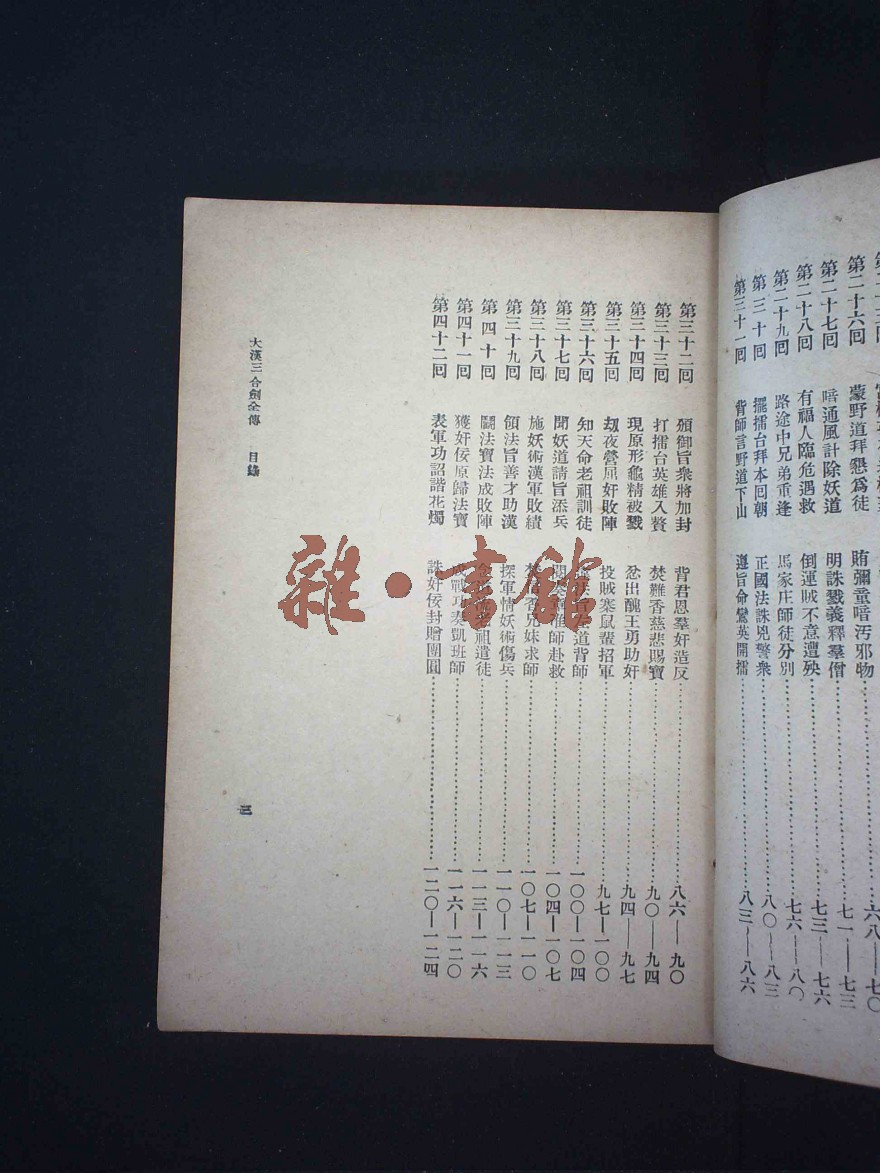 第二十六回 蒙野道拜懇爲徒 賄彌童暗汚邪物……六八—七〇
第二十七回 暗通風計除妖道 明誅戮義釋羣僧……七一—七三
第二十八回 有福人臨危遇救 倒運賊不意遭殃……七三—七六
第二十九回 路途中兄弟重逢 馬家庄師徒分別……七六—八〇
第三十回 擺擂台拜本回朝 正國法誅兇警衆……八〇—八三
第三十一回 背師言野道下山 遵旨命鸞英開擂……八三—八六
第三十二回 頒御旨衆將加封 背君恩羣奸造反……八六—九〇
第三十三回 打擂台英雄入贅 焚難香慈悲賜寶……九〇—九四
第三十四回 現原形龜精被戮 忿出醜王勇助奸……九四—九七
第三十五回 刼夜營屈奸敗陣 投賊寨鼠輩招軍……九七—一〇〇
第三十六回 知天命老祖訓徒 左道背師……一〇〇—一〇四
第三十七回 聞妖道請旨添兵 師赴救……一〇四—一〇七
第三十八回 施妖術漢軍敗績 香兄妹求師……一〇七—一一〇
第三十九回 領法旨善才助漢 探軍情妖術傷兵……一一〇—一一三
第四十回 鬭法寶法成敗陣 老祖遣徒……一一三—一一六
第四十一回 獲奸佞原歸法寶 戰功奏凱班師……一一六—一二〇
第四十二回 表軍功詔諧花燭 誅奸佞封贈團圓……一二〇—一二四
大漢三合劍全傳 目錄
三
雜·書館